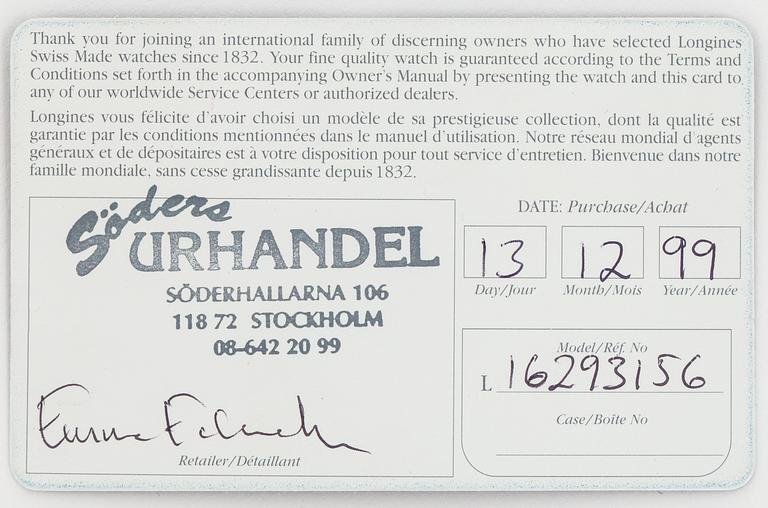 Thank you for joining an international family of discerning owners who have selected Longines
Swiss Made watches since 1832. Your fine quality watch is guaranteed according to the Terms and
Conditions set forth in the accompanying Owner's Manual by presenting the watch and this card to
any of our worldwide Service Centers or authorized dealers.
Longines vous félicite d'avoir choisi un modèle de sa prestigieuse collection, dont la qualité est
garantie par les conditions mentionnées dans le manuel d'utilisation. Notre réseau mondial d'agents
généraux et de dépositaires est à votre disposition pour tout service d'entretien. Bienvenue dans notre
famille mondiale, sans cesse grandissante depuis 1832.
Söders
URHANDEL
SÖDERHALLARNA 106
118 72 STOCKHOLM
08-642 20 99
Retailer/Détaillant
DATE: Purchase/Achat
13 12 99
Day/Jour Month/Mois Year/Année
Model/Réf. No
L 16293156
Case/Boîte No